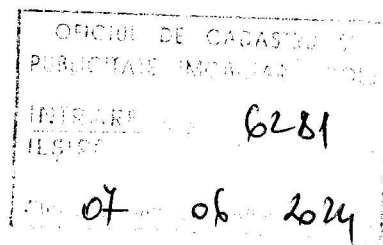 OFICIUL DE CADASTRU ȘI
PUBLICITATE IMOBILIARĂ
INTRARE 6281
IEȘIRE
07 06 2024